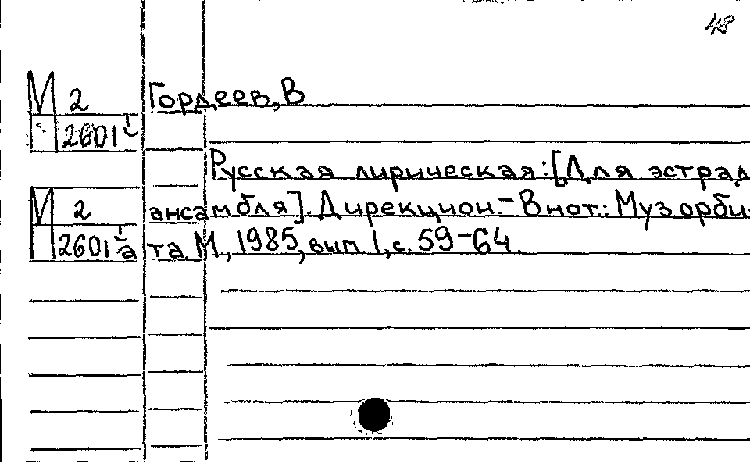 48
М 2 Гордеев, В
2601
Русская лирическая: [Для эстрад
М 2 ансамбля]. Дирекцион. – В нот.: Муз орби
2601 а та М., 1985, вып 1, с. 59-64